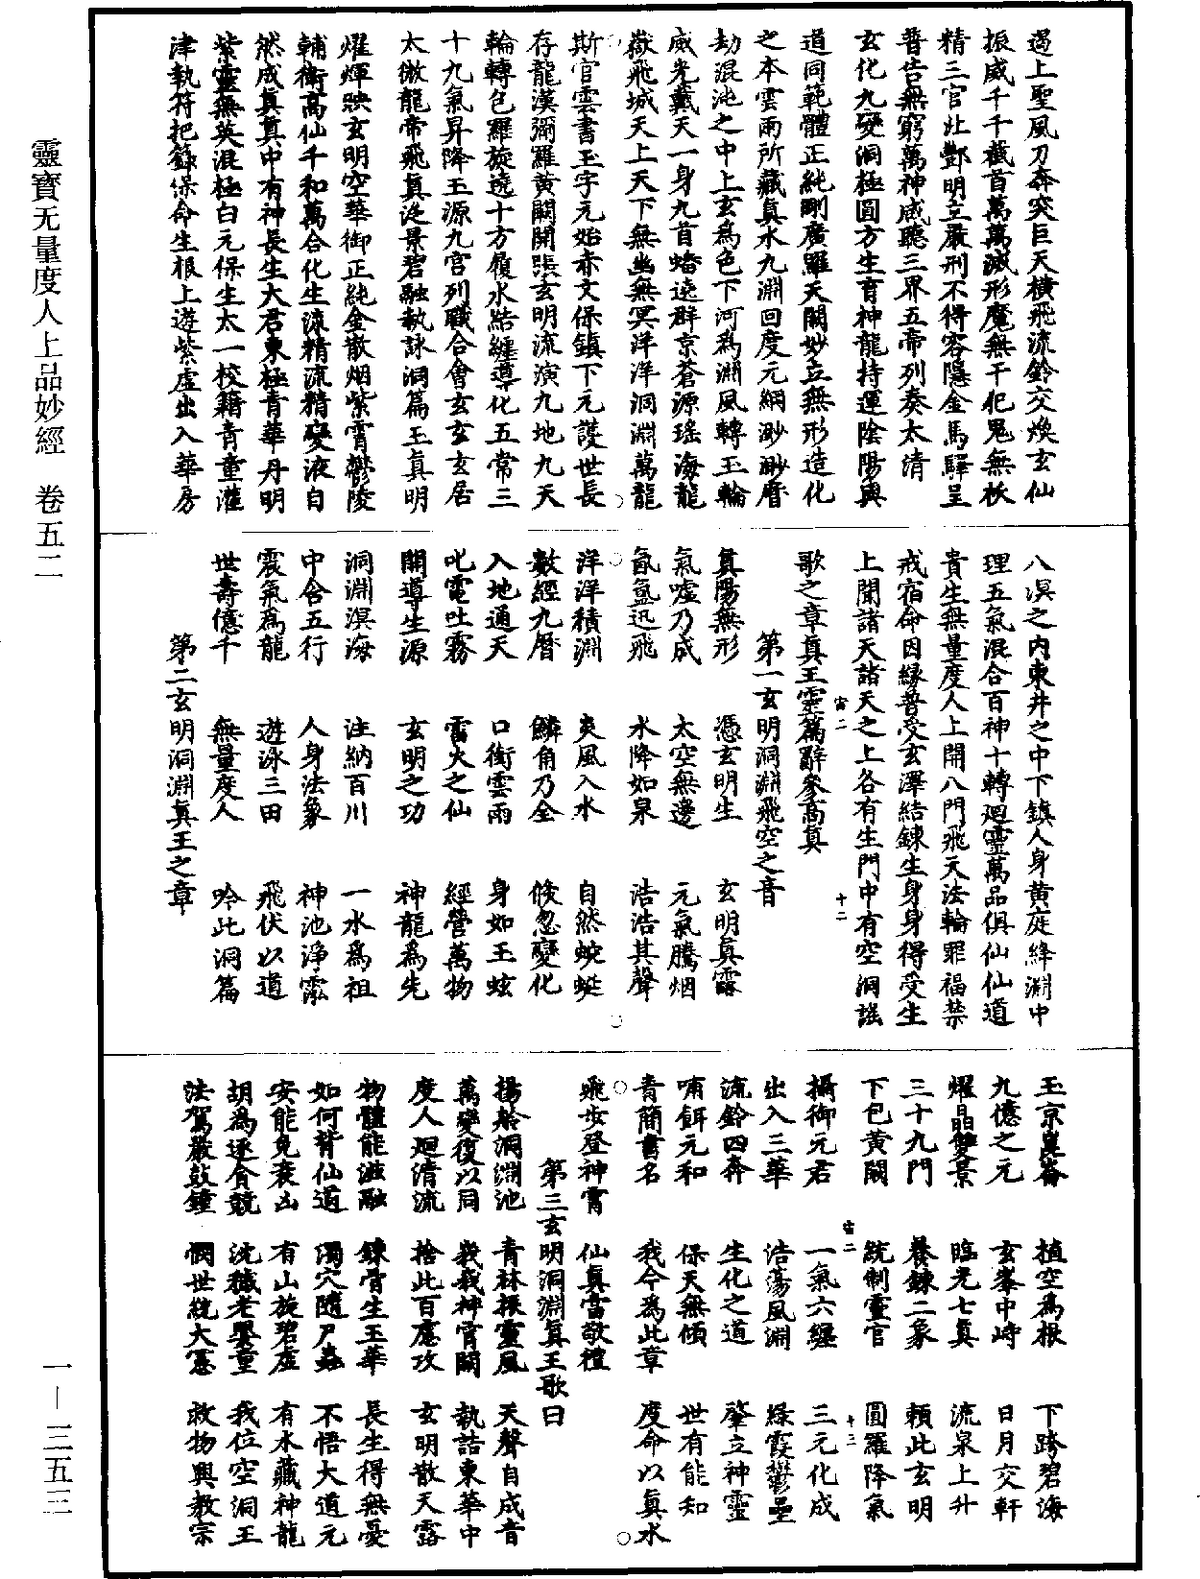 遏上聖風刀奔突巨天橫飛流鈴交煥玄仙
振威千千截首萬萬滅形魔無干犯鬼無妖
精三官北酆明立嚴刑不得容隱金馬驛呈
普告無窮萬神咸聽三界五帝列奏太清
玄化九變洞極圓方生育神龍持運陰陽與
道同範體正純剛廣羅天闕妙立無形造化
之本雲雨所藏真水九淵回度元綱渺渺曆
劫混沌之中上玄為色下河為淵風轉玉輪
威光戴天一身九首蟠遶群京蒼源瑤海龍
嶽飛城天上天下無幽無冥洋洋洞淵萬龍
斯官雲書玉字元始赤文保鎮下元護世長
存龍漢彌羅黃闕開張玄明流演九地九天
輪轉包羅旋遶十方履水結纏導化五常三
十九氣昇降玉源九宮列職合會玄玄玄居
太微龍帝飛真從景碧融執詠洞篇玉真明
燿煇映玄明空華御正純金散烟紫霄鬱陵
輔衛高仙千和萬合化生流精流精變液自
然成真真中有神長生大君東極青華丹明
紫靈無英混極白元保生太一校籍青童灌
津執符把籙保命生根上遊紫虛出入華房
八溟之內東井之中下鎮人身黃庭絳淵中
理五氣混合百神十轉迴靈萬品俱仙仙道
貴生無量度人上開八門飛天法輪罪福禁
戒宿命因緣普受玄澤結鍊生身身得受生
上聞諸天諸天之上各有生門中有空洞謠
歌之章真王靈篇辭參高真
第一玄明洞淵飛空之音
真陽無形　憑玄明生　玄明真靈
氣噓乃成　太空無邊　元氣騰烟
氤氳迅飛　水降如泉　浩浩其聲
洋洋積淵　爽風入水　自然蜿蜒
數經九曆　鱗角乃全　倏忽變化
入地通天　口銜雲雨　身如玉蛟
叱電吐霧　雷火之仙　經營萬物
開導生源　玄明之功　神龍為先
洞淵溟海　注納百川　一水為祖
中含五行　人身法象　神池淨泓
震氣為龍　遊泳三田　飛伏以道
世壽億千　無量度人　吟此洞篇
第二玄明洞淵真王之章
玉京崑崙　植空為根　下跨碧海
九億之元　玄峯中峙　日月交軒
燿晶雙景　臨光七真　流泉上升
三十九門　養鍊二象　賴此玄明
下包黃闕　統制靈官　圓羅降氣
攝御元君　一氣六纏　三元化成
出入三華　浩蕩風淵　綠霞鬱壘
流鈴四奔　生化之道　肇立神靈
哺餌元和　保天無傾　世有能知
青簡書名　我今為此章　度命以真水
飛步登神霄　仙真當敬禮
第三玄明洞淵真王歌曰
揚舲洞淵池　青林振靈風　天聲自成音
萬變復以同　峩峩神霄闕　執詰東華中
度人迴清流　捨此百慮攻　玄明散天露
物體能滋融　鍊骨生玉華　長生得無憂
如何背仙道　濁穴隨尸蟲　不悟大道元
安能免衰凶　有山旋碧虛　有水藏神龍
胡為逐貪競　沈穢老嬰童　我位空洞王
法駕嚴鼓鐘　憫世統大憲　救物興教宗
宙二　十二
宙二　十三
靈寶无量度人上品妙經　卷五二
一—三五三